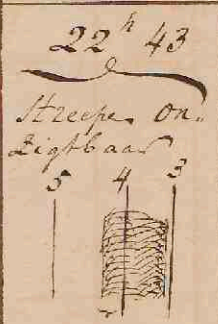 22ʰ 43
Streepen on-
zigtbaar
5 4 3